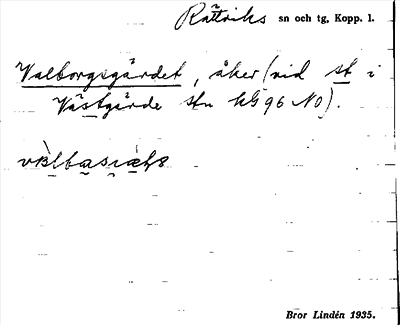 Rättviks sn och tg, Kopp. l.
Valborgsgärdet, åker (vid st i
Västgärde stn kG 96 NO).
Bror Lindén 1935.